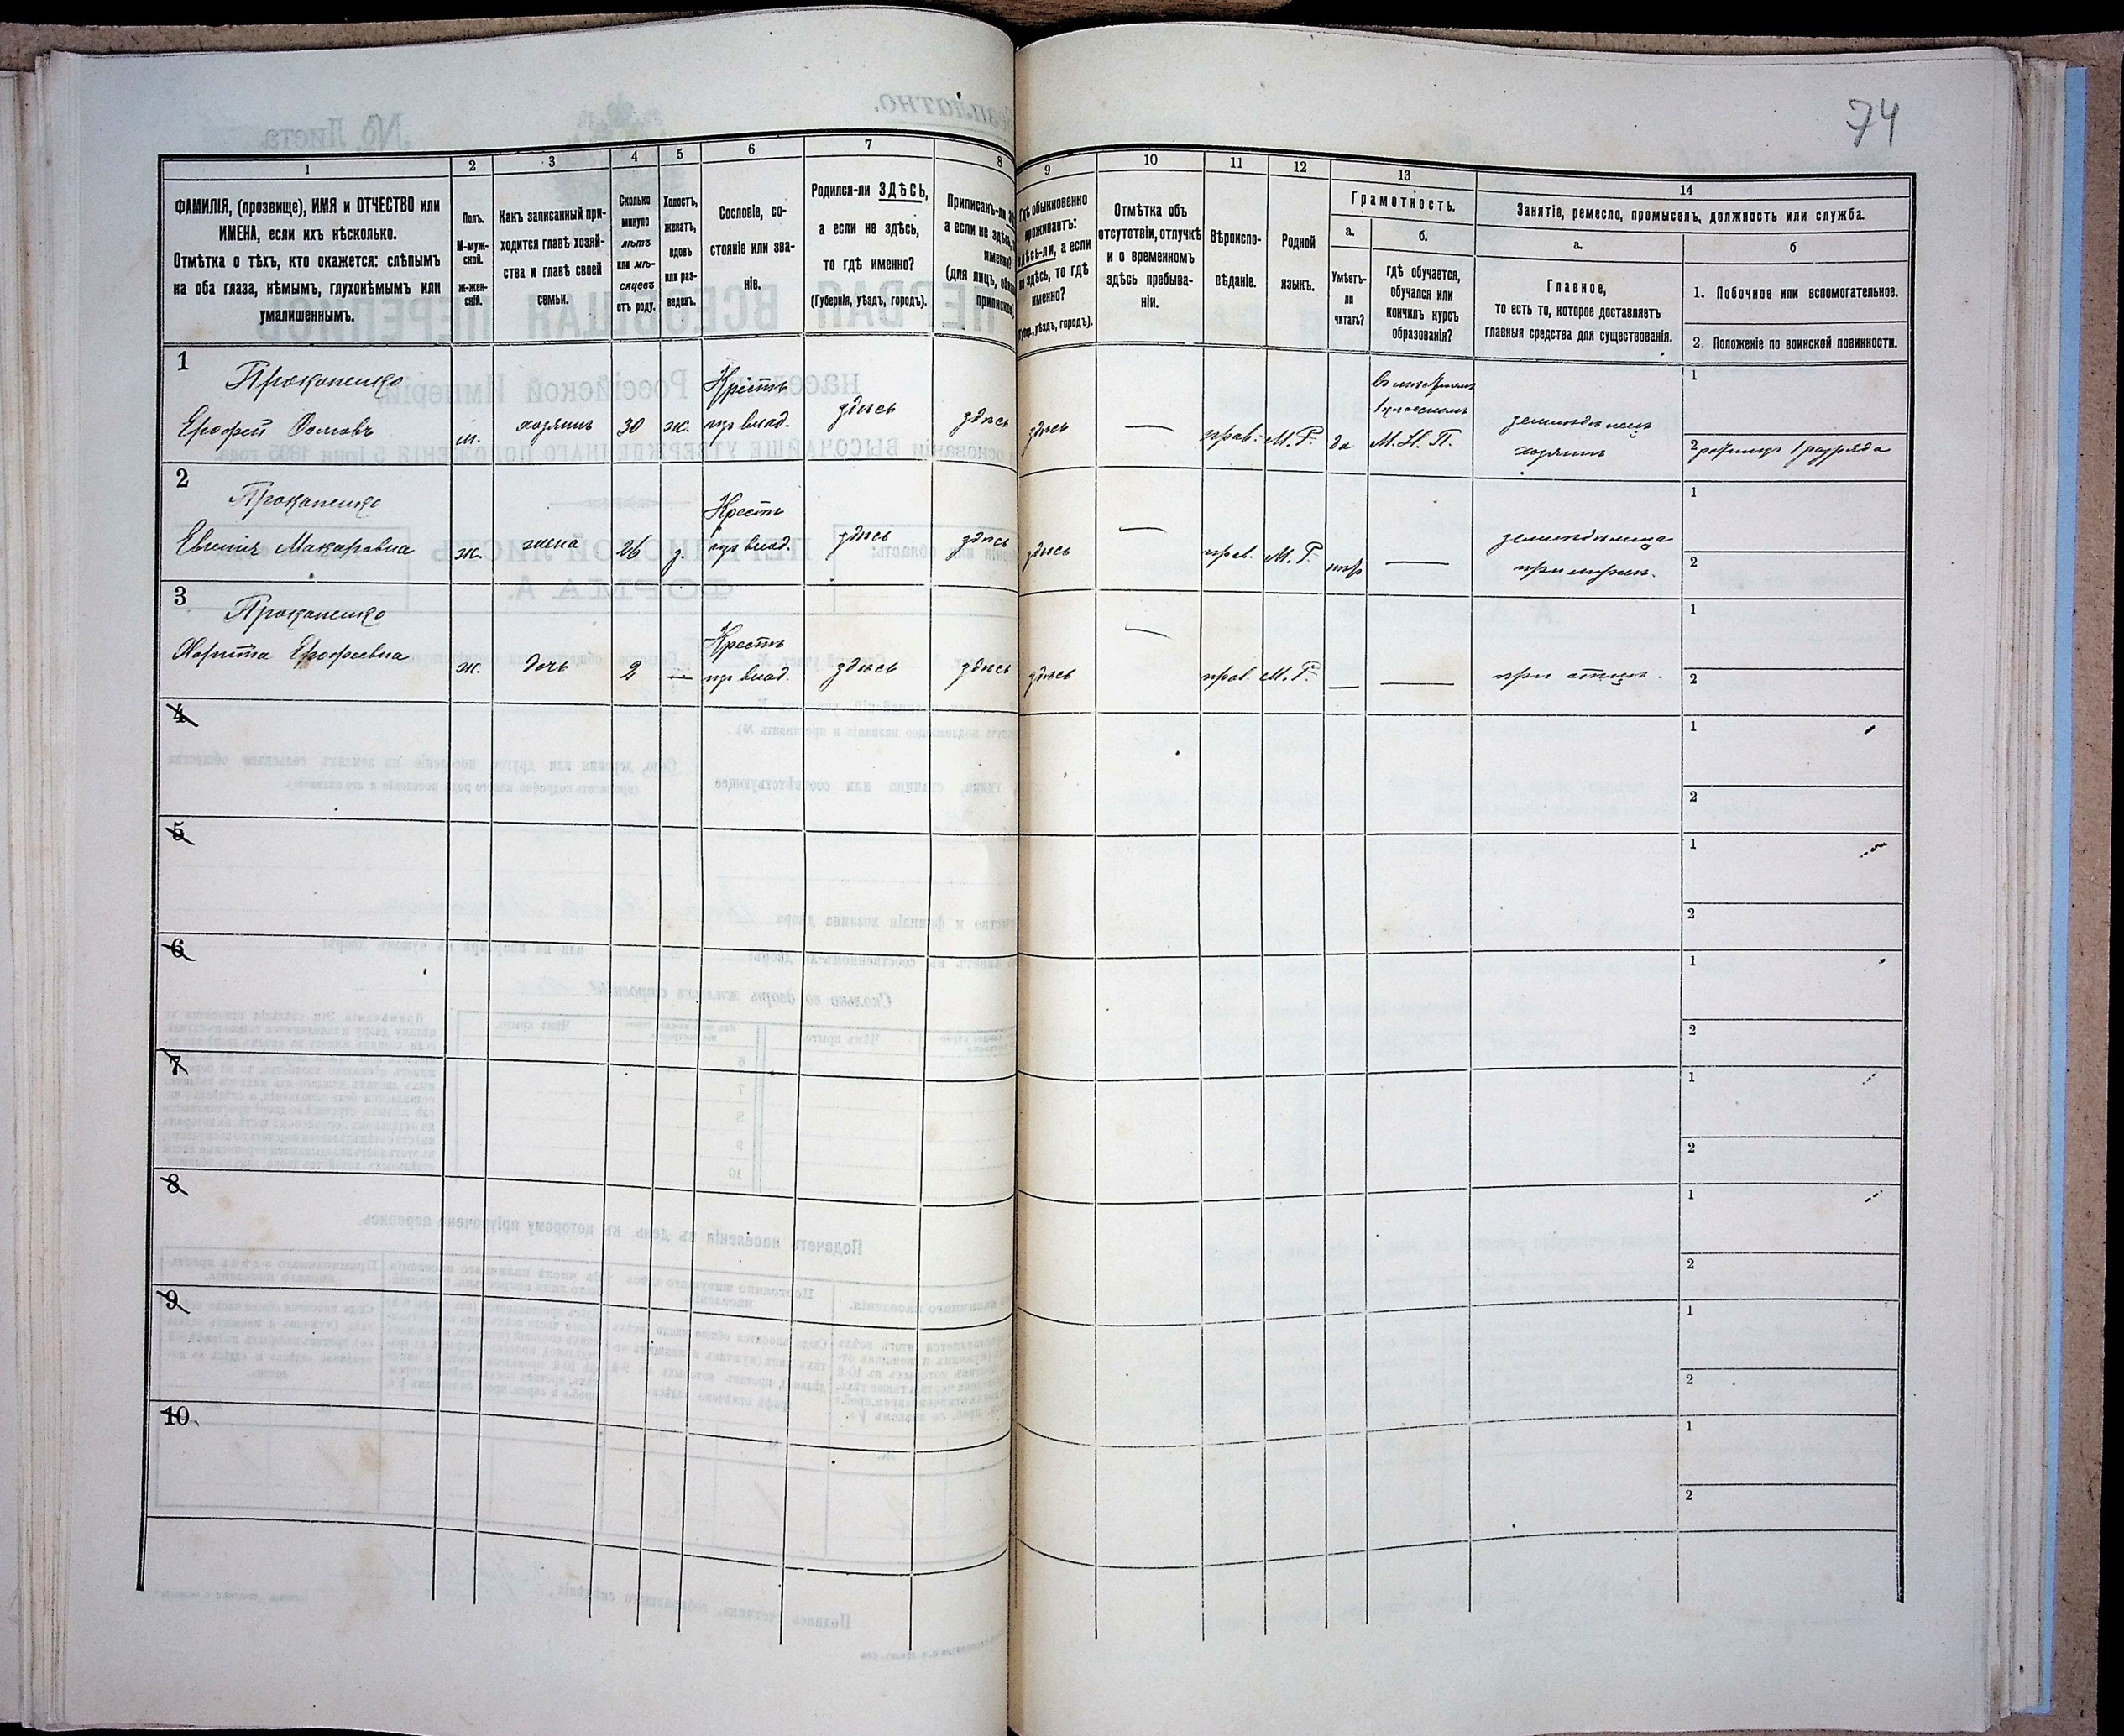 74
1
2
3
4
5
6
7
8
9
10
11
12
13
14
ФАМИЛІЯ, (прозвище), ИМЯ и ОТЧЕСТВО или
ИМЕНА, если ихъ нѣсколько.
Отмѣтка о тѣхъ, кто окажется: слѣпымъ
на оба глаза, нѣмымъ, глухонѣмымъ или
умалишеннымъ.
Полъ.
М-муж-
ской.
ж-жен-
скій.
Какъ записанный при-
ходится главѣ хозяй-
ства и главѣ своей
семьи.
Сколько
минуло
лѣтъ
или мѣ-
сяцевъ
отъ роду.
Холостъ,
женатъ,
вдовъ
или раз-
веденъ.
Сословіе, со-
стояніе или зва-
ніе.
Родился-ли ЗДѢСЬ,
а если не здѣсь,
то гдѣ именно?
(Губернія, уѣздъ, городъ).
Приписанъ-ли
а если не здѣсь,
именно?
(для лицъ,
Гдѣ обыкновенно
проживаетъ:
здѣсь-ли, а если
не здѣсь, то гдѣ
именно?
уѣздъ, городъ).
Отмѣтка объ
отсутствіи, отлучкѣ
и о временномъ
здѣсь пребыва-
ніи.
Вѣроиспо-
вѣданіе.
Родной
языкъ.
Грамотность.
а.
Умѣетъ-
ли
читать?
б.
гдѣ обучается,
обучался или
кончилъ курсъ
образованія?
Занятіе, ремесло, промыселъ, должность или служба.
а.
Главное,
то есть то, которое доставляетъ
главныя средства для существованія.
б
1. Побочное или вспомогательное.
2. Положеніе по воинской повинности.
1
Прокопенко
Ерофей Фомовъ
м.
хозяинъ
30
ж.
Крестъ
изъ влад.
здѣсь
здѣсь
здѣсь
—
прав.
М. Р.
да
1 классномъ
М. Н. П.
земледѣлецъ
хозяинъ
1
2 ратникъ 1 разряда
2
Прокопенко
Евгенія Макаровна
ж.
жена
26
з.
Крестъ
изъ влад.
здѣсь
здѣсь
здѣсь
—
прав.
М. Р.
нѣтъ
—
при мужѣ.
1
2
3
Прокопенко
Харитина Ерофеевна
ж.
дочь
2
—
Крестъ
изъ влад.
здѣсь
здѣсь
здѣсь
—
прав.
М. Р.
—
—
при отцѣ.
1
2
4
1
2
5
1
2
6
1
2
7
1
2
8
1
2
9
1
2
10
1
2